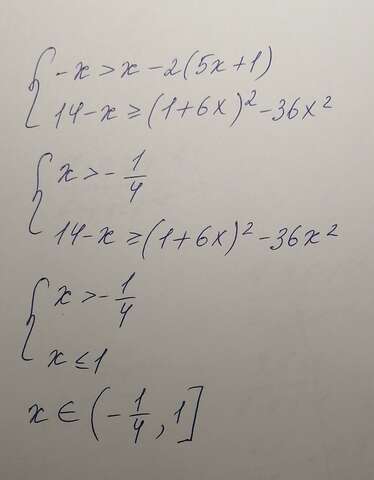 -x > x - 2(5x+1)
14 - x ≥ (1+6x)² - 36x²
x > - 1/4
14 - x ≥ (1+6x)² - 36x²
x > - 1/4
x ≤ 1
x ∈ (- 1/4, 1]